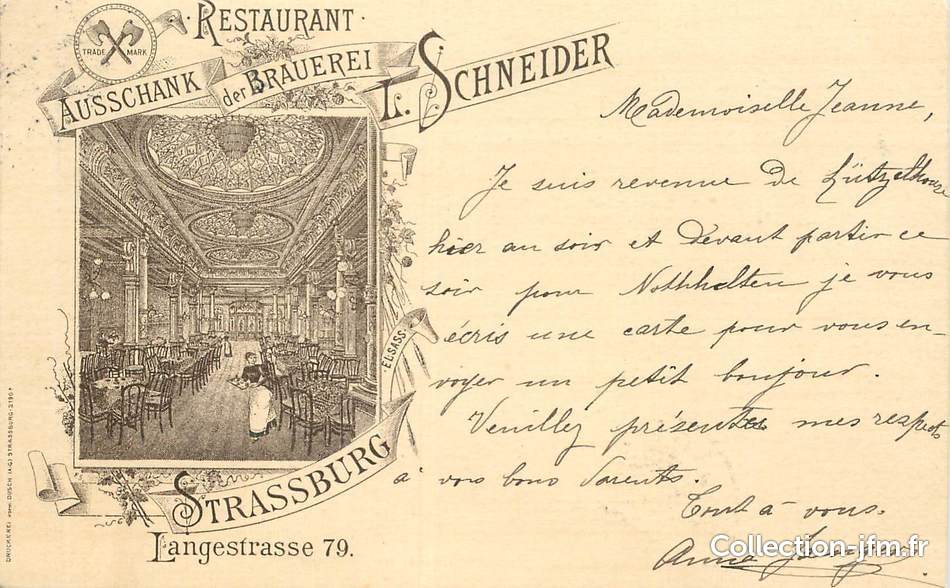 RESTAURANT
TRADE MARK
AUSSCHANK der BRAUEREI L. SCHNEIDER
ELSASS
STRASSBURG
Langestrasse 79.
Mademoiselle Jeanne,
Je suis revenue de Lützelhouse
hier au soir et devant partir ce
soir pour Nothhalten je vous
écris une carte pour vous en-
voyer un petit bonjour.
Veuillez présenter mes respects
à vos bons Parents.
Tout à vous.
Anna
DRUCKEREI vorm. DUSCH (A.G.) STRASSBURG
Collection-jfm.fr